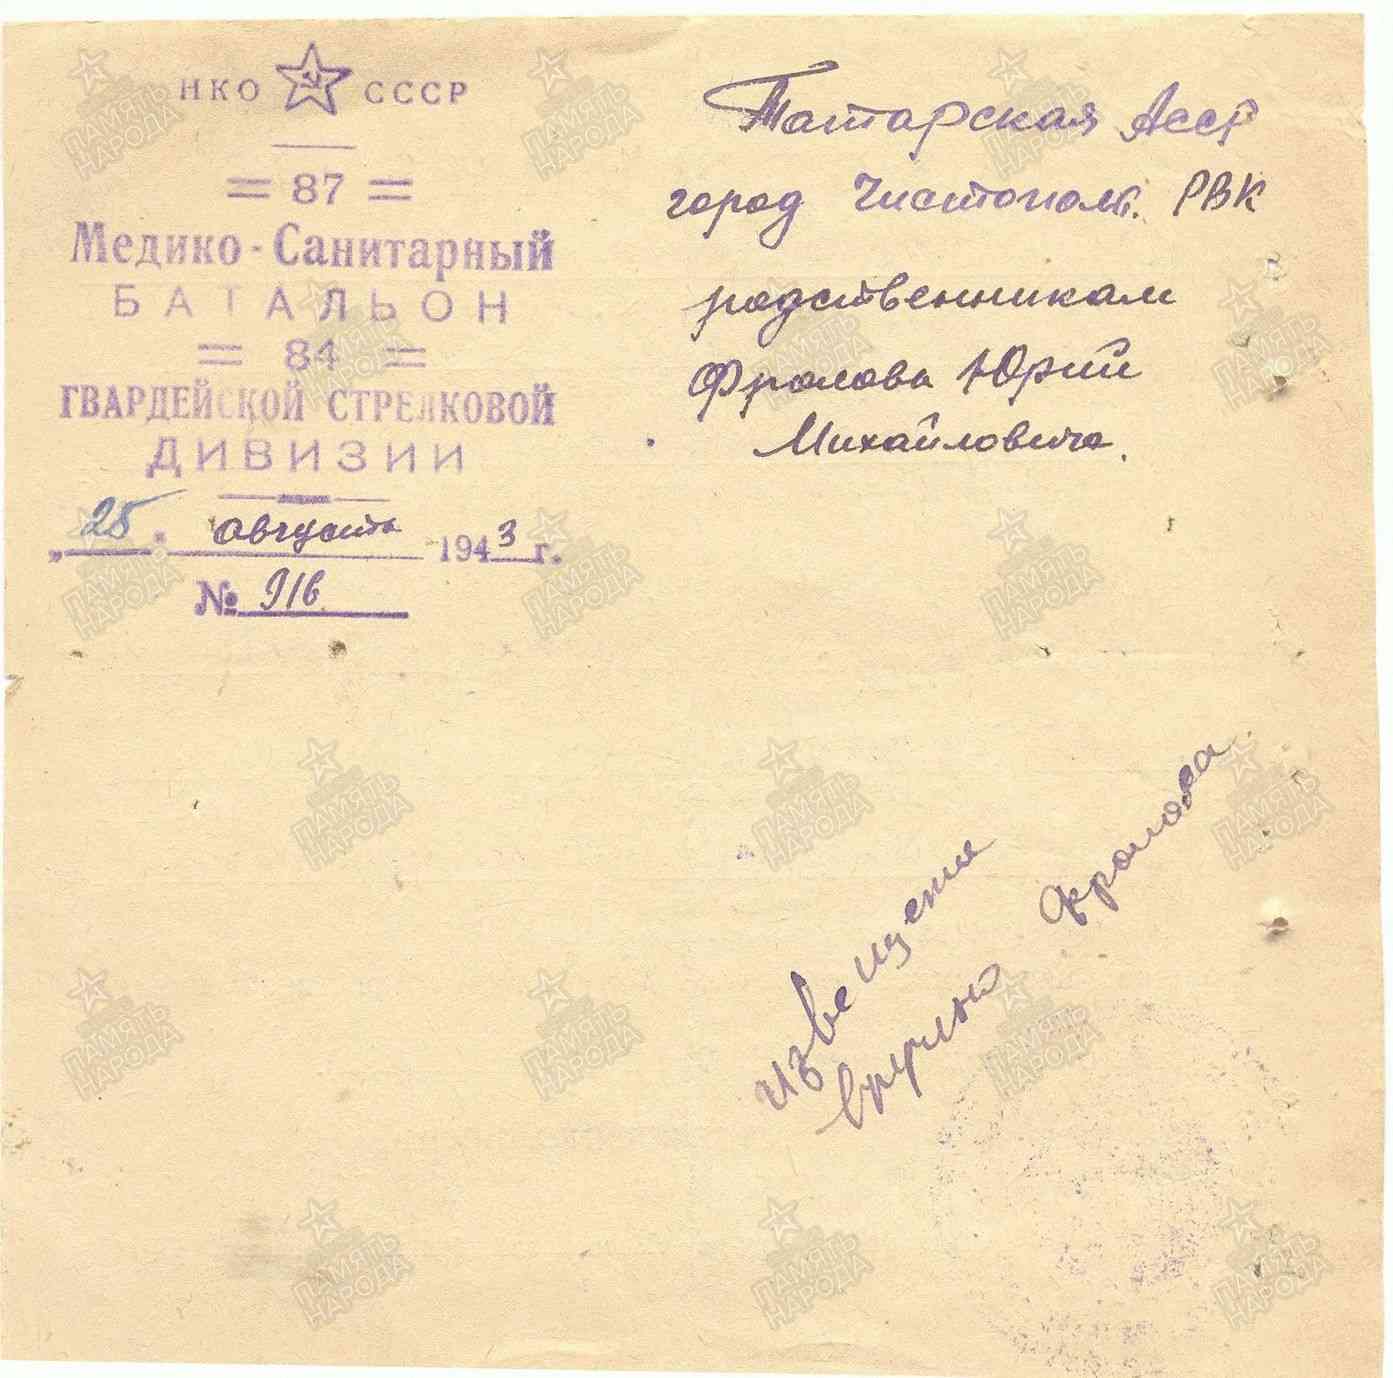 НКО СССР
= 87 =
Медико-Санитарный
БАТАЛЬОН
= 84 =
ГВАРДЕЙСКОЙ СТРЕЛКОВОЙ
ДИВИЗИИ
„25" августа 1943 г.
№ 916
Татарская Асср
город Чистополь. РВК
родственникам
Фролова Юрий
Михайловича.
извещение
вручено Фролова
ПАМЯТЬ НАРОДА